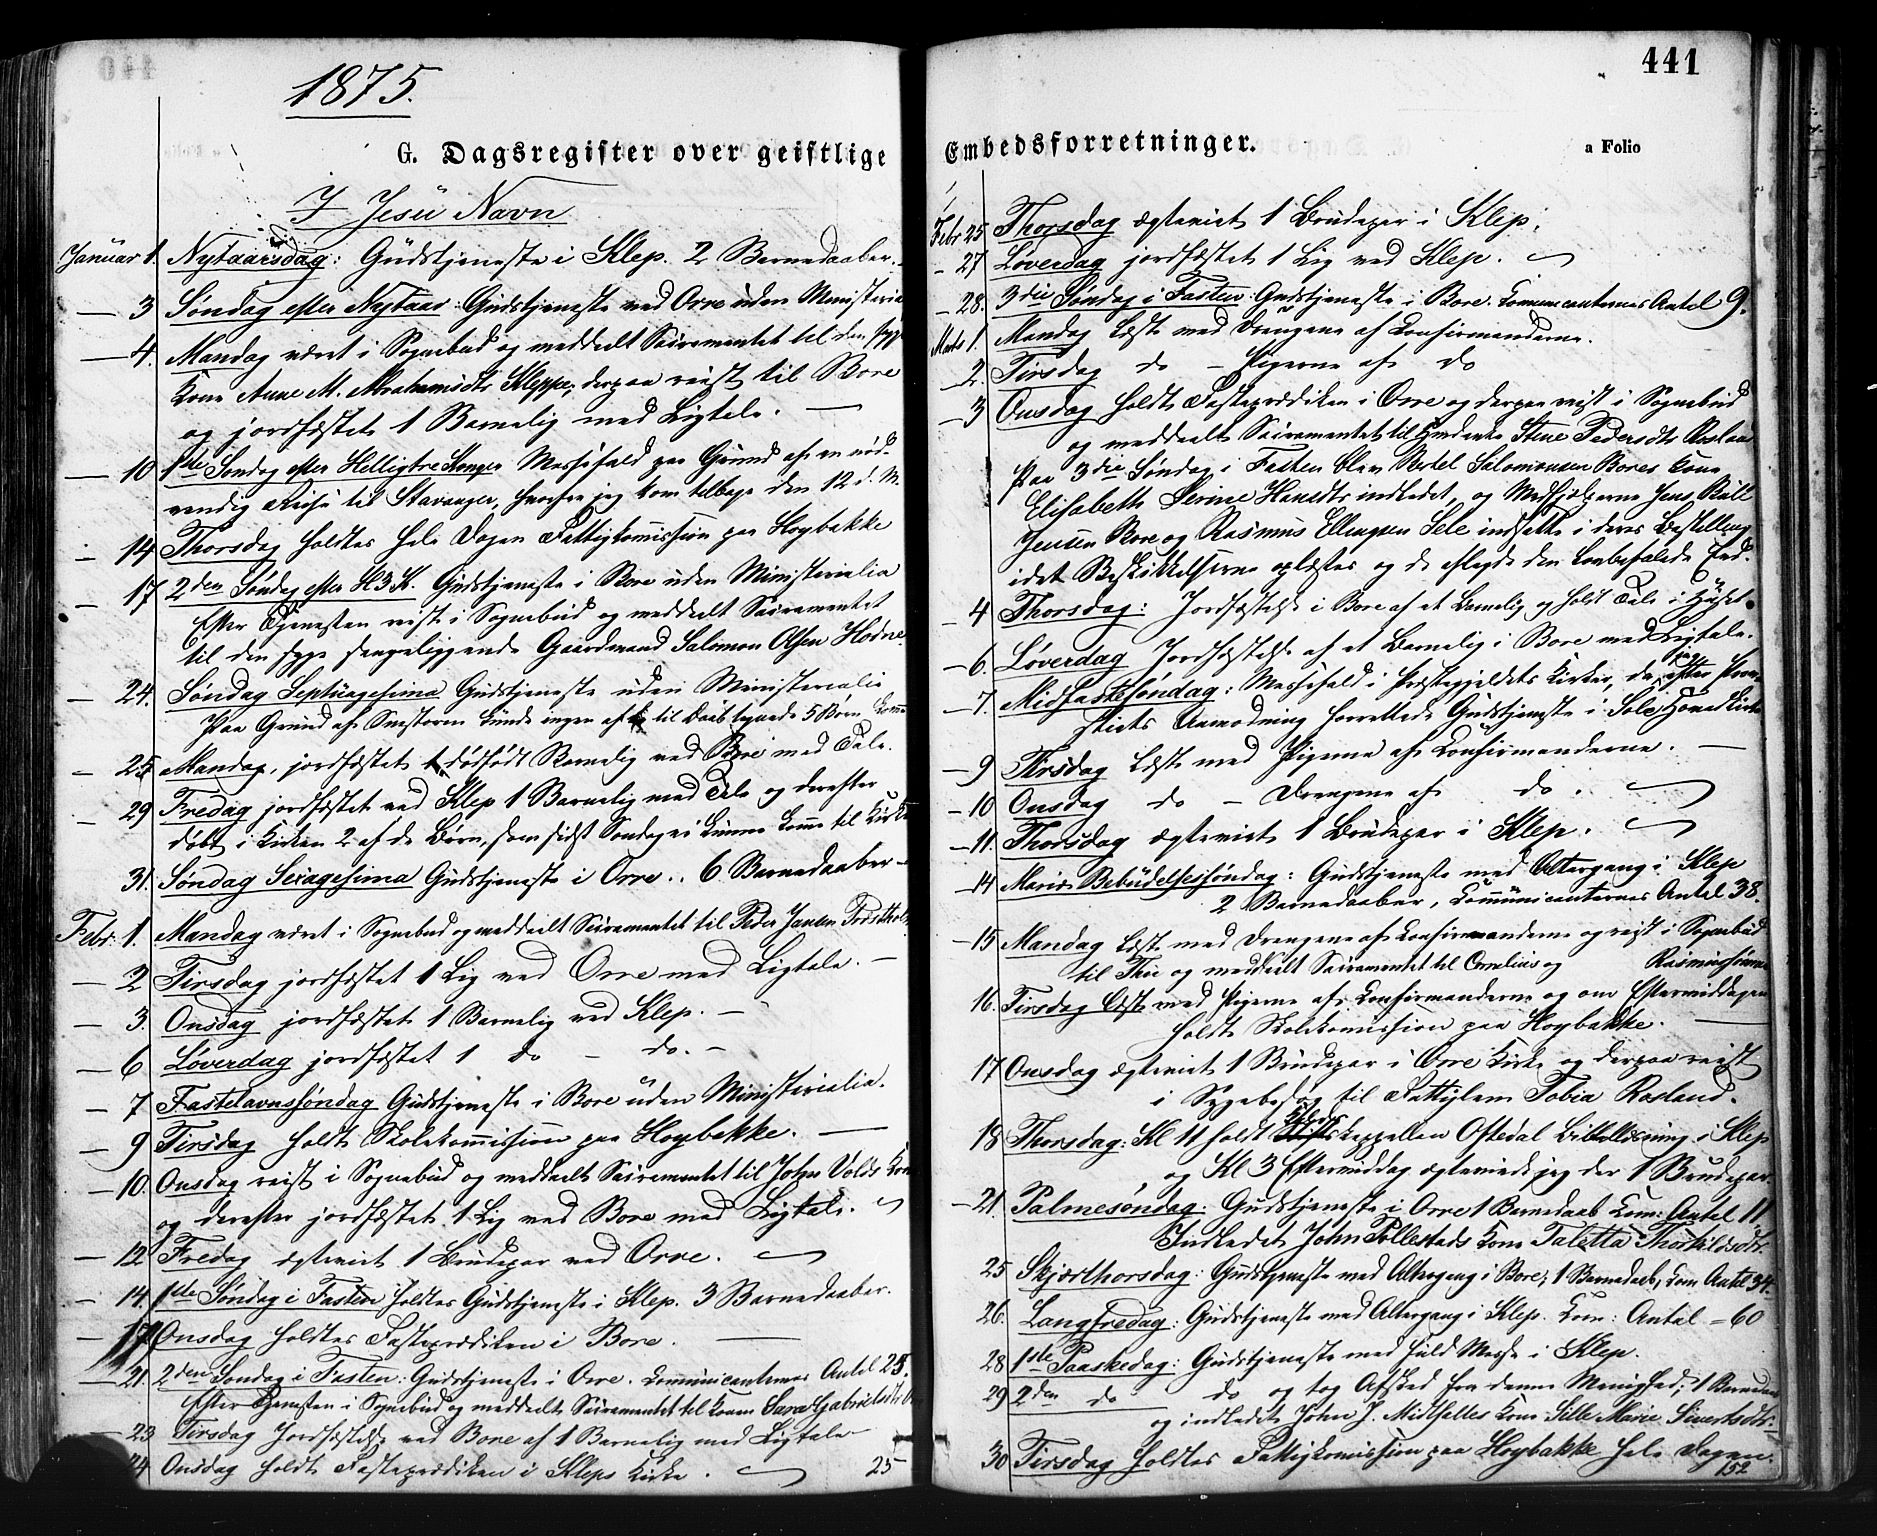 440
1875.
G. Dagsregister over geistlige
I Jesu Navn
Januar 1. Nytaarsdag: Gudstjeneste i Klep. 2 Barnedaaber.
— 3 Søndag efter Nytaar: Gudstjeneste ved Orre uden Ministerialia
— 4. Mandag været i Sognebud og meddeelt Sacramentet til den syge
Kone Anne M. Abrahamsdtr Kleppe, derpaa reist til Bore
og jordfæstet 1 Barnelig med Ligtale. —
— 10 1ste Søndag efter Helligtre Konger Messefald paa Grund af en nød-
vendig Reise til Stavanger, hvorfra jeg kom tilbage den 12 d. M.
— 14 Thorsdag holdtes hele Dagen Fattigkomission paa Hoybakke
— 17 2den Søndag efter H3K. Gudstjeneste i Bore uden Ministerialia
Efter Tjenesten reist i Sognebud og meddeelt Sacramentet
til den syge sengeliggende Gaardmand Salomon Olsen Hodne.
— 24. Søndag Septuagesima Gudstjeneste uden Ministerialia
Paa Grund af Snestorm kunde ingen af de til Daab tegnede 5 Børn komme
— 25 Mandag, jordfæstet 1 dødfødt Barnelig ved Bore med Tale.
— 29 Fredag jordfæstet ved Klep 1 Barnelig med Tale og derefter
døbt i Kirken 2 af de Børn, som sidst Søndag ei kunne komme til Kirke
31. Søndag Sexagesima Gudstjeneste i Orre. 6 Barnedaaber —
Febr. 1. Mandag været i Sognebud og meddeelt Sacramentet til Peder Jansen
— 2 Tirsdag jordfæstet 1 Lig ved Orre med Ligtale. —
— 3. Onsdag jordfæstet 1 Barnelig ved Klep. —
— 6 Løverdag jordfæstet 1 do — do. —
— 7 Fastelavnssøndag Gudstjeneste i Bore uden Ministerialia.
— 9 Tirsdag holdt Skolekommission paa Hoybakke. —
— 10. Onsdag reist i Sognebud og meddeelt Sacramentet til John Volds Kone
og derefter jordfæstet 1 Lig ved Bore med Ligtale.
— 12 Fredag ægteviet 1 Brudepar ved Orre.
— 14. 1ste Søndag i Fasten holdtes Gudstjeneste i Klep. 3 Barnedaaber.
— 17 Onsdag holdtes Fasteprædiken i Bore. —
— 21. 2den Søndag i Fasten: Gudstjeneste i Orre. Communicanternes Antal 25.
Efter Tjenesten i Sognebud og meddeelt Sacramentet til Konen Sara Gabrielsdtr
— 23 Tirsdag Jordfæstelse ved Bore af 1 Barnelig med Ligtale
— 24 Onsdag holdt Fasteprædiken i Kleps Kirke.
25
441
Embedsforretninger.
a Folio
Febr 25 Thorsdag ægteviet 1 Brudepar i Klep.
— 27 Løverdag jordfæstet 1 Lig ved Klep.
— 28. 3die Søndag i Fasten: Gudstjeneste i Bore. Communicanternes Antal 9.
Marts 1. Mandag læste med Drengene af Confirmanderne.
— 2. Tirsdag do — Pigerne af do
— 3 Onsdag holdt Fasteprædiken i Orre og derpaa reist i Sognebud
og meddeelt Sacramentet til Stine Pedersdtr Rosland
Paa 3die Søndag i Fasten blev Bertel Salomonsen Bores Kone
Elisabeth Serine Hansdtr indledet, og Medhjælperne Jens Bull
Jensen Bore og Rasmus Ellingsen Sele indsatte i deres Bestilling
idet Beskikkelserne oplæstes og de aflagde den lovbefalede Eed.
— 4 Thorsdag: Jordfæstelse i Bore af et Barnelig og holdt Tale i Huset.
— 6. Løverdag Jordfæstelse af et Barnelig i Bore med Ligtale.
— 7. Midfastesøndag: Messefald i Præstegjeldets Kirker, da jeg efter Prov-
stiets Anmodning forrettede Gudstjeneste i Sole Hovedkirke
— 9 Tirsdag læste med Pigerne af Confirmanderne. —
— 10 Onsdag do — Drengene af do.
— 11. Thorsdag ægteviet 1 Brudepar i Klep.
— 14 Mariæ Bebudelsessøndag: Gudstjeneste med Altergang i Klep
2 Barnedaaber, Communicanternes Antal 38.
— 15 Mandag læste med Drengene af Confirmanderne og reist i Sognebud
til Thu og meddeelt Sacramentet til Cornelius og
16. Tirsdag læste med Pigerne af Confirmanderne og om Eftermiddagen
holdt Skolekomission paa Hoybakke. —
17 Onsdag ægteviet 1 Brudepar i Orre Kirke og derpaa reist
i Sygebesøg til Fattiglem Tobia Rosland.
18 Thorsdag: Kl 11 holdt kappellan Oftedal Bibellæsning i Klep
og Kl 3 Eftermiddag ægteviede jeg der 1 Brudepar.
— 21. Palmesøndag: Gudstjeneste i Orre 1 Barnedaab Com: Antal 11.
Indledet John Pollestads Kone Taletta Thorkildsdtr.
25 Skjærthorsdag: Gudstjeneste med Altergang i Bore; 1 Barnedaab, Com Antal 34.
26. Langfredag: Gudstjeneste med Altergang i Klep. Com: Antal = 60
28 1ste Paaskedag: Gudstjeneste med fuld Messe i Klep.
29 2den do — do og tog Afsked fra denne Menighed; 1 Barnedaab
og indledet John J. Midtfelts Kone Sille Marie Sivertsdtr.
30 Tirsdag holdtes Fattigkomission paa Hoybakke hele Dagen.
152